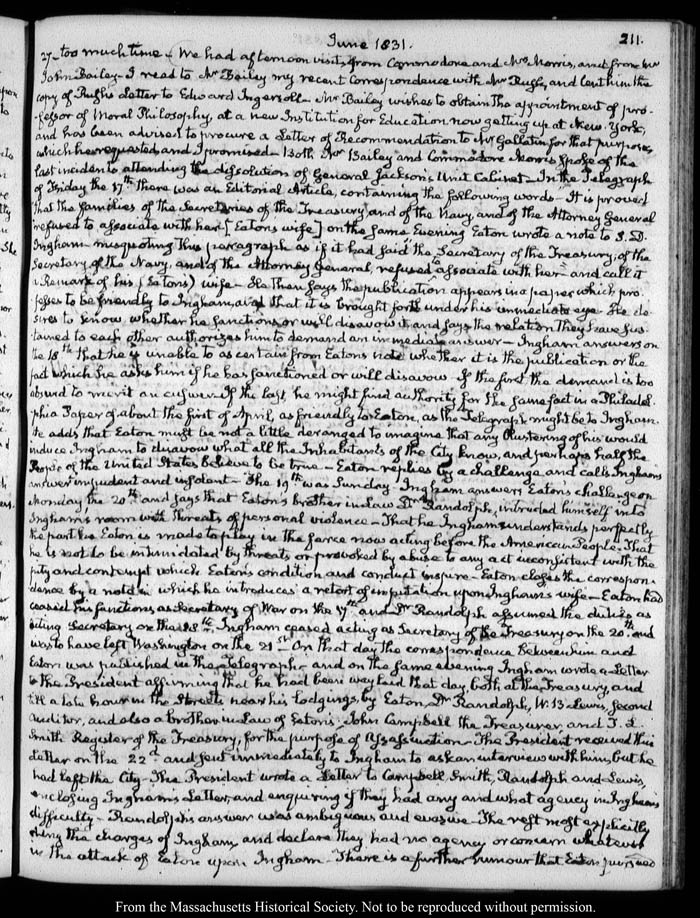 June 1831.
211.
27. too much time – We had afternoon visits, from Commodore and Mrs Morris, and from Mr
John Bailey – I read to Mr Bailey my recent Correspondence with Mr Rush, and lent him the
copy of Rush's Letter to Edward Ingersoll – Mr Bailey wishes to obtain the appointment of pro-
-fessor of Moral Philosophy, at a new Institution for Education now getting up at New-York,
and has been advised to procure a Letter of Recommendation to Mr Gallatin for that purpose,
which he requested and I promised – Both Mr Bailey and Commodore Morris spoke of the
last incidents attending the dissolution of General Jackson's Unit Cabinet – In the Telegraph
of Friday the 17th there was an Editorial Article, containing the following words – It is proved
that the families of the Secretaries of the Treasury and of the Navy, and of the Attorney General
refused to associate with her [Eaton's wife] on the same Evening Eaton wrote a note to S. D.
Ingham – misquoting this paragraph as if it had said "the Secretary of the Treasury, of the
Secretary of the Navy, and of the Attorney General, refused to associate with her" and call it
a Remark of his (Eaton's) wife – He then says the publication appears in a paper which pro-
-fesses to be friendly to Ingham, and that it is brought forth under his immediate eye – He de-
sires to know, whether he sanctions or will disavow it, and says the relation They have sus-
tained to each other authorizes him to demand an immediate answer – Ingham answers on
the 18th that he is unable to ascertain from Eaton's note whether it is the publication or the
fact which he asks him if he has sanctioned or will disavow – If the first the demand is too
absurd to merit an answer – If the last, he might find authority for the same fact in a Philadel-
-phia Paper of about the first of April, as friendly to Eaton, as the Telegraph might be to Ingham.
He adds that Eaton must be not a little deranged to imagine that any blustering of his would
induce Ingham to disavow what all the Inhabitants of the City know, and perhaps half the
People of the United States believe to be true – Eaton replies by a challenge and calls Ingham's
answer impudent and insolent – The 19th was Sunday – Ingham answers Eaton's challenge on
Monday the 20th and says that Eaton's brother in law Dr Randolph, intruded himself into
Ingham's room with threats of personal violence – That he Ingham understands perfectly
the part he Eaton is made to play in the farce now acting before the American People. That
he is not to be intimidated by threats or provoked by abuse to any act inconsistent with the
pity and contempt which Eaton's condition and conduct inspire – Eaton closes the correspon-
dence by a note in which he introduces a retort of imputation upon Ingham's wife – Eaton had
ceased his functions as Secretary of War on the 17th and Dr Randolph assumed the duties as
acting Secretary on the 18th. Ingham ceased acting as Secretary of the Treasury on the 20th and
was to have left Washington on the 21st On that day the correspondence between him and
Eaton was published in the Telegraph, and on the same evening Ingham wrote a Letter
to the President affirming that he had been waylaid that day, both at the Treasury, and
till a late hour in the Streets near his lodgings, by Eaton, Dr Randolph, W. B. Lewis, second
Auditor, and also a brother in law of Eaton's, John Campbell the Treasurer and T. L.
Smith Register of the Treasury, for the purpose of Assassination – The President received this
Letter on the 22d and sent immediately to Ingham to ask an interview with him, but he
had left the City – The President wrote a Letter to Campbell, Smith, Randolph and Lewis
enclosing Ingham's Letter, and enquiring if they had any and what agency in Ingham's
difficulty – Randolph's answer was ambiguous and evasive – The rest most explicitly
deny the charges of Ingham, and declare they had no agency or concern whatever
in the attack of Eaton upon Ingham – There is a further rumour that Eaton pursued
From the Massachusetts Historical Society. Not to be reproduced without permission.